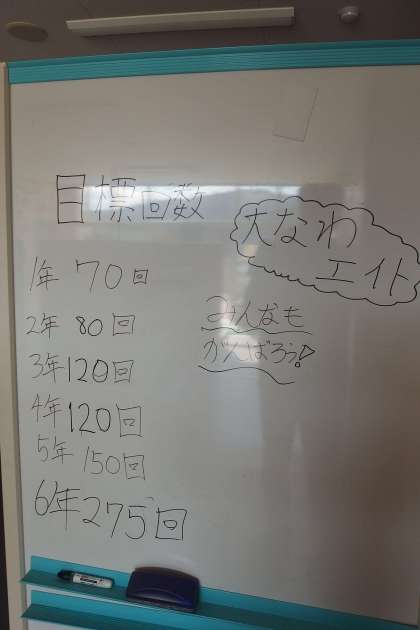 目標回数
大なわ
エイト
1年 70回
2年 80回
3年 120回
4年 120回
5年 150回
6年 275回
みんなも
がんばろう!